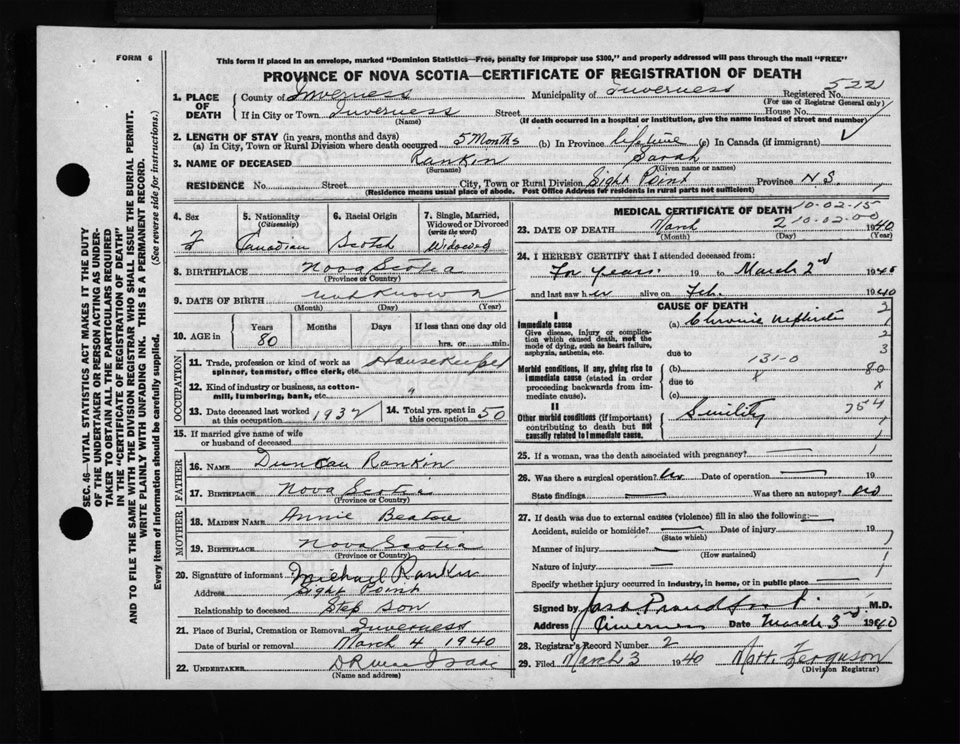 FORM 6
This form if placed in an envelope, marked "Dominion Statistics—Free, penalty for improper use $300," and properly addressed will pass through the mail "FREE"
PROVINCE OF NOVA SCOTIA—CERTIFICATE OF REGISTRATION OF DEATH
1. PLACE OF DEATH
County of Inverness Municipality of Inverness Registered No. 522
(For use of Registrar General only)
If in City or Town Inverness Street House No.
(Name) (If death occurred in a hospital or institution, give the name instead of street and number)
2. LENGTH OF STAY (in years, months and days)
(a) In City, Town or Rural Division where death occurred 5 Months (b) In Province lifetime (c) In Canada (if immigrant)
3. NAME OF DECEASED Rankin Sarah
(Surname) (Given name or names)
RESIDENCE No. Street City, Town or Rural Division Sight Point Province N S.
(Residence means usual place of abode. Post Office Address for residents in rural parts not sufficient)
4. Sex 5. Nationality (Citizenship) 6. Racial Origin 7. Single, Married, Widowed or Divorced (write the word)
F Canadian Scotch Widowed
8. BIRTHPLACE Nova Scotia
(Province or Country)
9. DATE OF BIRTH not known
(Month) (Day) (Year)
10. AGE in Years Months Days If less than one day old
80 hrs. or min.
OCCUPATION
11. Trade, profession or kind of work as spinner, teamster, office clerk, etc. Housekeeper
12. Kind of industry or business, as cotton-mill, lumbering, bank, etc. "
13. Date deceased last worked at this occupation 1932 14. Total yrs. spent in this occupation 50
15. If married give name of wife or husband of deceased
FATHER
16. NAME Duncan Rankin
17. BIRTHPLACE Nova Scotia
(Province or Country)
MOTHER
18. MAIDEN NAME Annie Beaton
19. BIRTHPLACE Nova Scotia
(Province or Country)
20. Signature of informant Michael Rankin
Address Sight Point
Relationship to deceased Step son
21. Place of Burial, Cremation or Removal Inverness
Date of burial or removal March 4 1940
22. UNDERTAKER
(Name and address)
MEDICAL CERTIFICATE OF DEATH 10-02-15
10-02-00
23. DATE OF DEATH March 2 1940
(Month) (Day) (Year)
24. I HEREBY CERTIFY that I attended deceased from:
For years. 19 to March 2nd 1940
and last saw her alive on Feb. 1940
CAUSE OF DEATH
I
Immediate cause
Give disease, injury or complication which caused death, not the mode of dying, such as heart failure, asphyxia, asthenia, etc.
(a) Chronic nephritis
due to
131-0
Morbid conditions, if any, giving rise to immediate cause (stated in order proceeding backwards from immediate cause).
(b) 80
due to x
(c)
II
Other morbid conditions (if important) contributing to death but not causally related to immediate cause.
Senility 754
25. If a woman, was the death associated with pregnancy? —
26. Was there a surgical operation? No Date of operation — 19
State findings — Was there an autopsy? no
27. If death was due to external causes (violence) fill in also the following:—
Accident, suicide or homicide? — Date of injury 19
(State which)
Manner of injury —
(How sustained)
Nature of injury —
Specify whether injury occurred in industry, in home, or in public place —
Signed by M.D.
Address Inverness Date March 3rd 1940
28. Registrar's Record Number 2
29. Filed March 3 1940 Matt. Ferguson
(Division Registrar)
SEC. 46—VITAL STATISTICS ACT MAKES IT THE DUTY
OF THE UNDERTAKER OR PERSON ACTING AS UNDER-
TAKER TO OBTAIN ALL THE PARTICULARS REQUIRED
IN THE "CERTIFICATE OF REGISTRATION OF DEATH"
AND TO FILE THE SAME WITH THE DIVISION REGISTRAR WHO SHALL ISSUE THE BURIAL PERMIT.
WRITE PLAINLY WITH UNFADING INK. THIS IS A PERMANENT RECORD.
Every item of information should be carefully supplied. (See reverse side for instructions.)